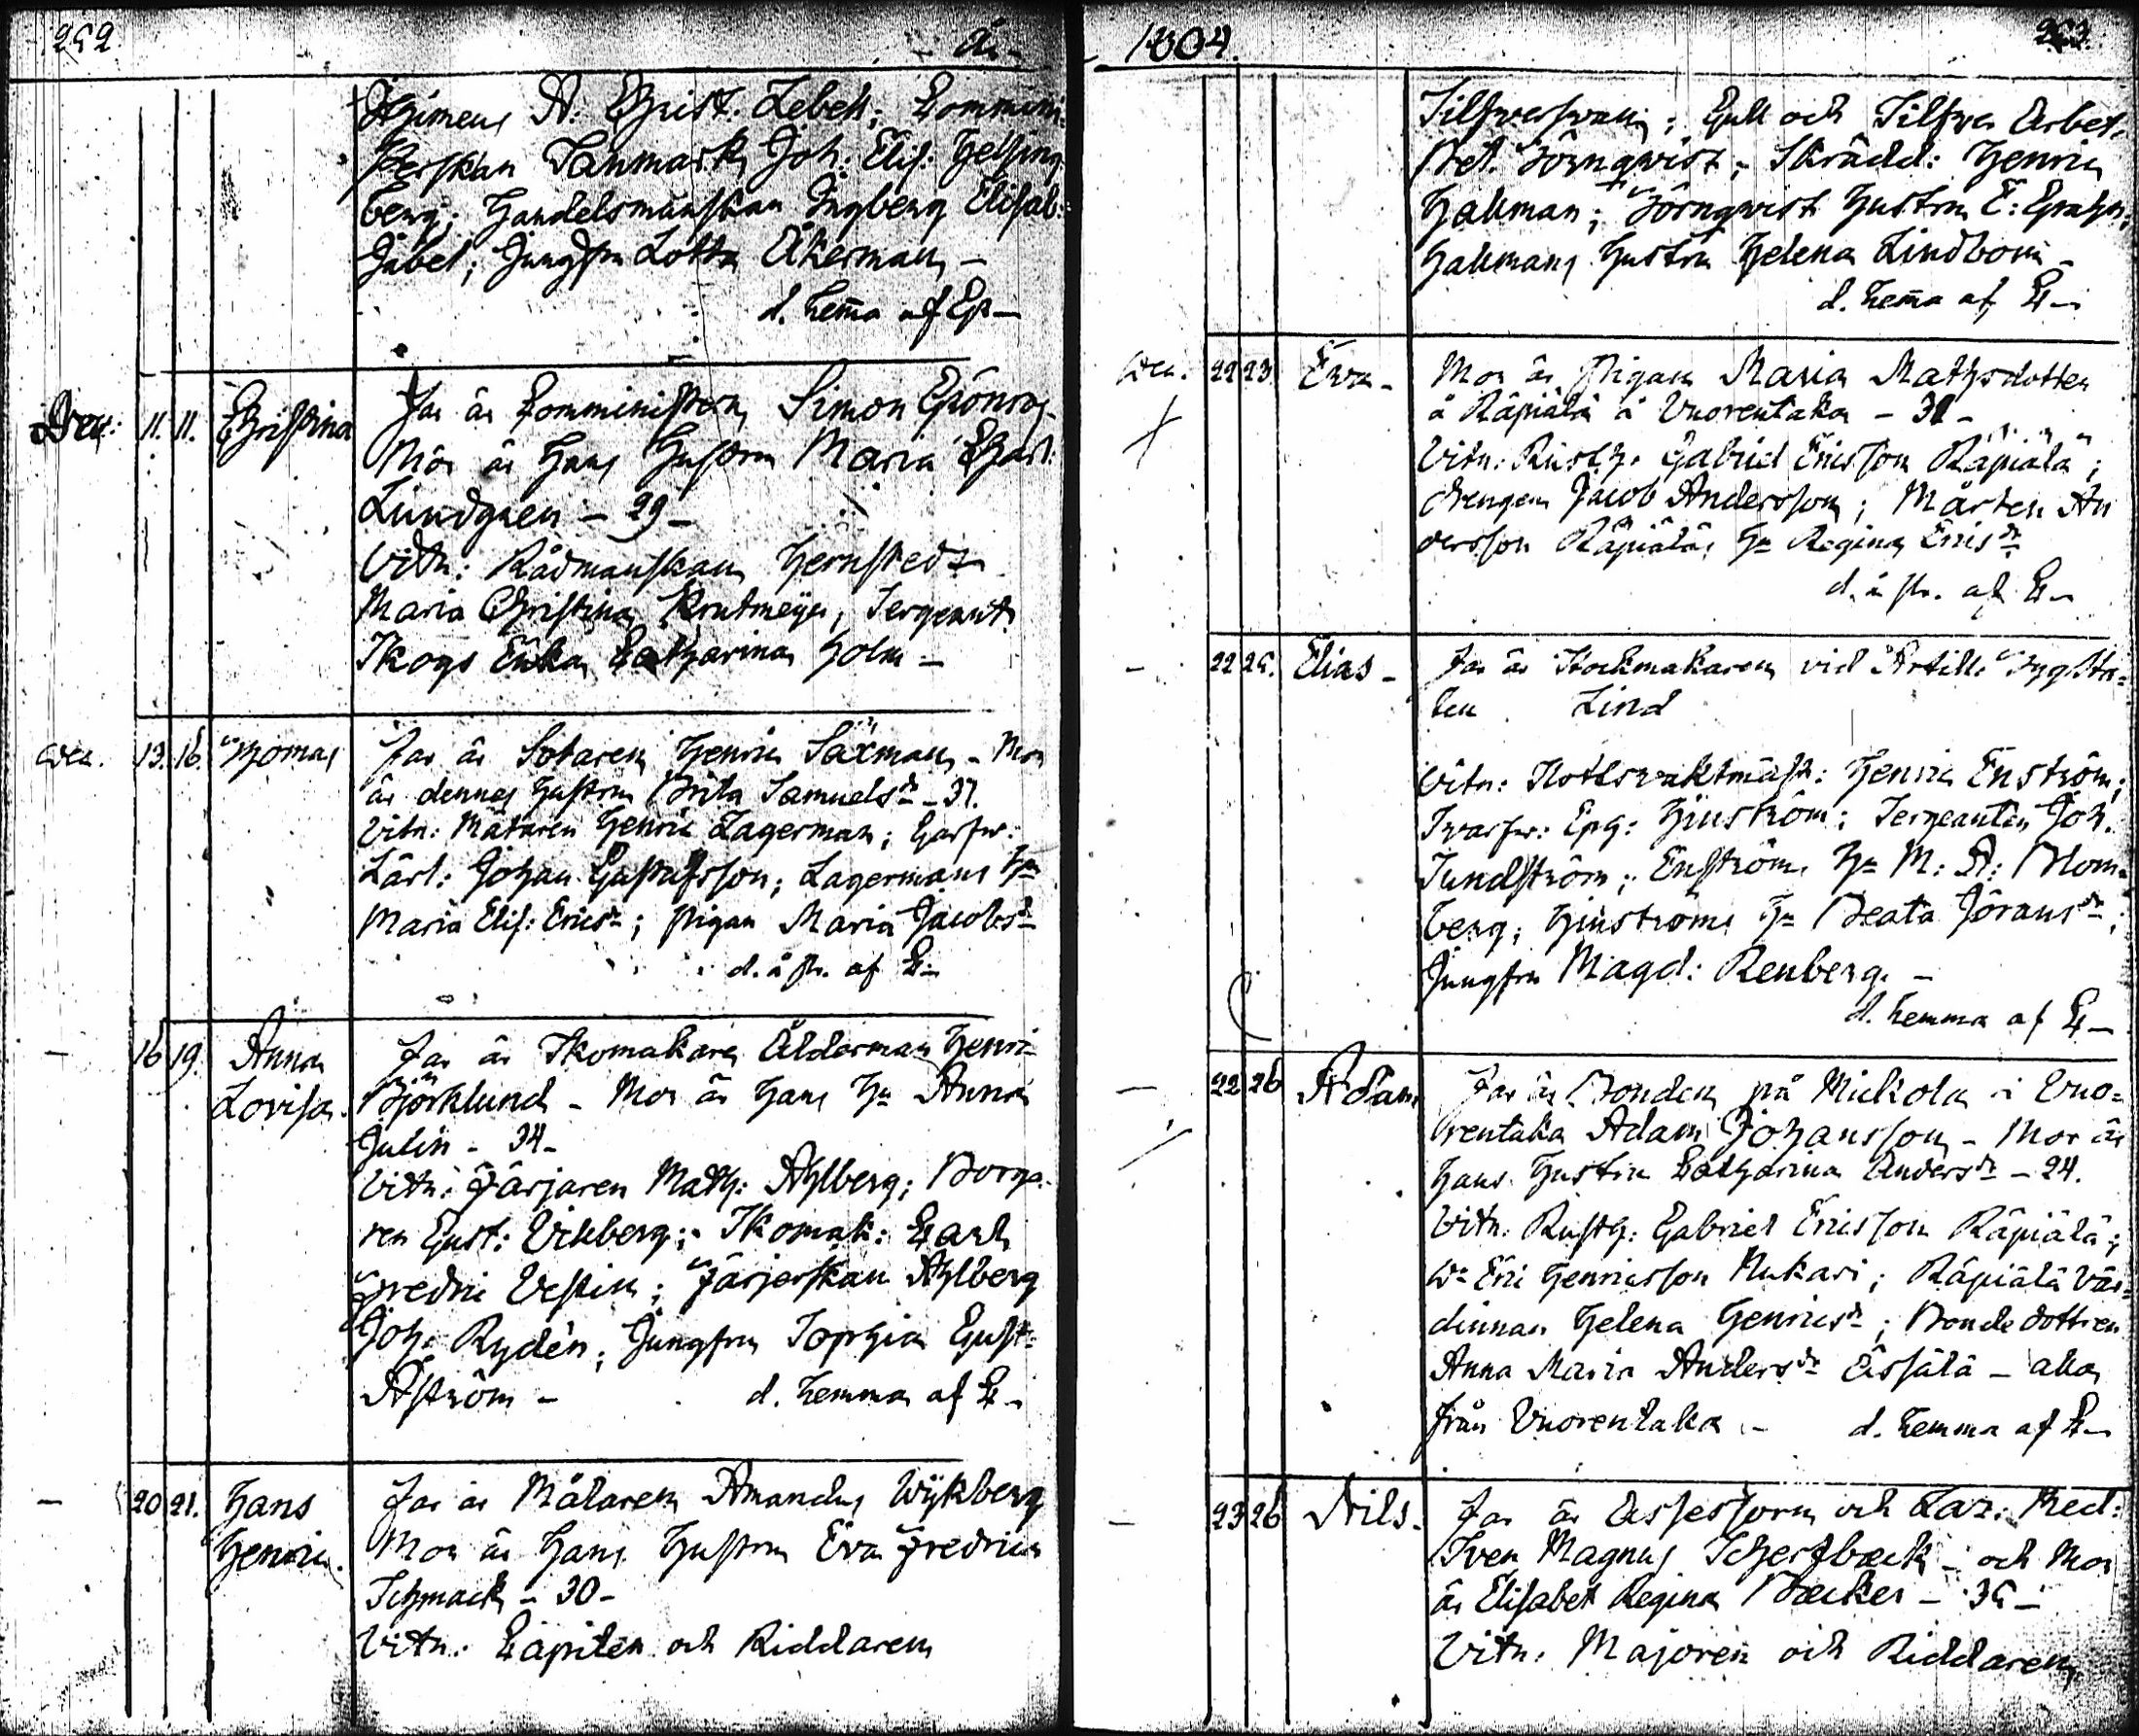 252
år
Hjimens A: Christ: Zebell; Commini:
sterskan Sanmark Joh: Elis: Helsing
berg; Handelsmanskan Ingberg Elisab:
Gabel; Jungfru Lotta Åkerman –
d. hemma af Gr –
Dec: 11. 11. Christina
Far är Comministern Simon Grönroos
Mor är hans Hustru Maria Charl:
Lundgren – 29 –
Vitn: Rådmanskan Hernstedt
Maria Christina Krutmeyer, Sergeant
Skogs Enka Catharina Holm –
Dec. 13. 16. Thomas
Far är Sotaren Henric Säxman – Mor
är dennes hustru Brita Samuelsdr – 37.
Vitn: Mätaren Henric Lagerman; Garfw:
Lärl: Johan Gustafsson; Lagermans Hu
Maria Elis: Ericsdr; Pigan Maria Jacobsdr
d. å st. af C –
– 16 19. Anna
Lovisa.
Far är Skomakare Ålderman Henric
Björklund – Mor är hans Hu Anna
Julin – 34 –
Vitn: Färjaren Math: Ahlberg; Borga-
ren Gust: Vikberg; Skomak: Carl
Fredric Vestin; Färjerskan Ahlberg
Joh: Rydén; Jungfru Sophia Gust:
Aström –
d. hemma af C –
– 20 21. Hans
Henric.
Far är Målaren Amandus Wykberg
Mor är hans Hustru Eva Fredrica
Schmack – 30 –
Vitn: Capiten och Riddaren
1804.
253.
Silfversvan; Gull och Silfver Arbet.
Pet. Törnqvist; Skrädd: Henric
Hallman; Törnqvist hustru E: Grahn;
Hallmans hustru Helena Lindbom –
d. hemma af C –
Dec. 22 23 Eva –
Mor är Pigan Maria Mathsdotter
å Räpiälä i Vuorentaka – 31 –
Vitn: Rusth. Gabriel Ericsson Räpiälä;
drengen Jacob Andersson; Mårten An
dersson Räpiäläs Hu Regina Ericsdr
d. å st. af C –
– 22 25. Elias –
Far är Stockmakaren vid Artill: Tygsta=
ten Lind
Vitn: Slottsvaktmäst: Henric Enström;
Svarfw: Grg: Hjinström; Sergeanten Joh.
Sundström; Enströms Hu M: A: Blom=
berg; Hjinströms Hu Beata Göransdr;
Jungfru Magd: Renberg. –
d. hemma af C –
– 22 26 Adam
Far är Bonden på Mickola i Vuo=
rentaka Adam Johansson – Mor är
hans Hustru Catharina Andersdr – 24.
Vitn: Rusth: Gabriel Ericsson Räpiälä;
Dn Eric Henricsson Nukari; Räpiälä Vär=
dinnan Helena Henricsdr; Bondedottren
Anna Maria Andersdr Ässälä – alla
från Vuorentaka –
d. hemma af C –
– 23 26 Nils.
Far är Assessorn och Laz: Med:
Sven Magnus Scherfbeck – och Mor
är Elisabet Regina Becker – 35 –
Vitn. Majoren och Riddaren